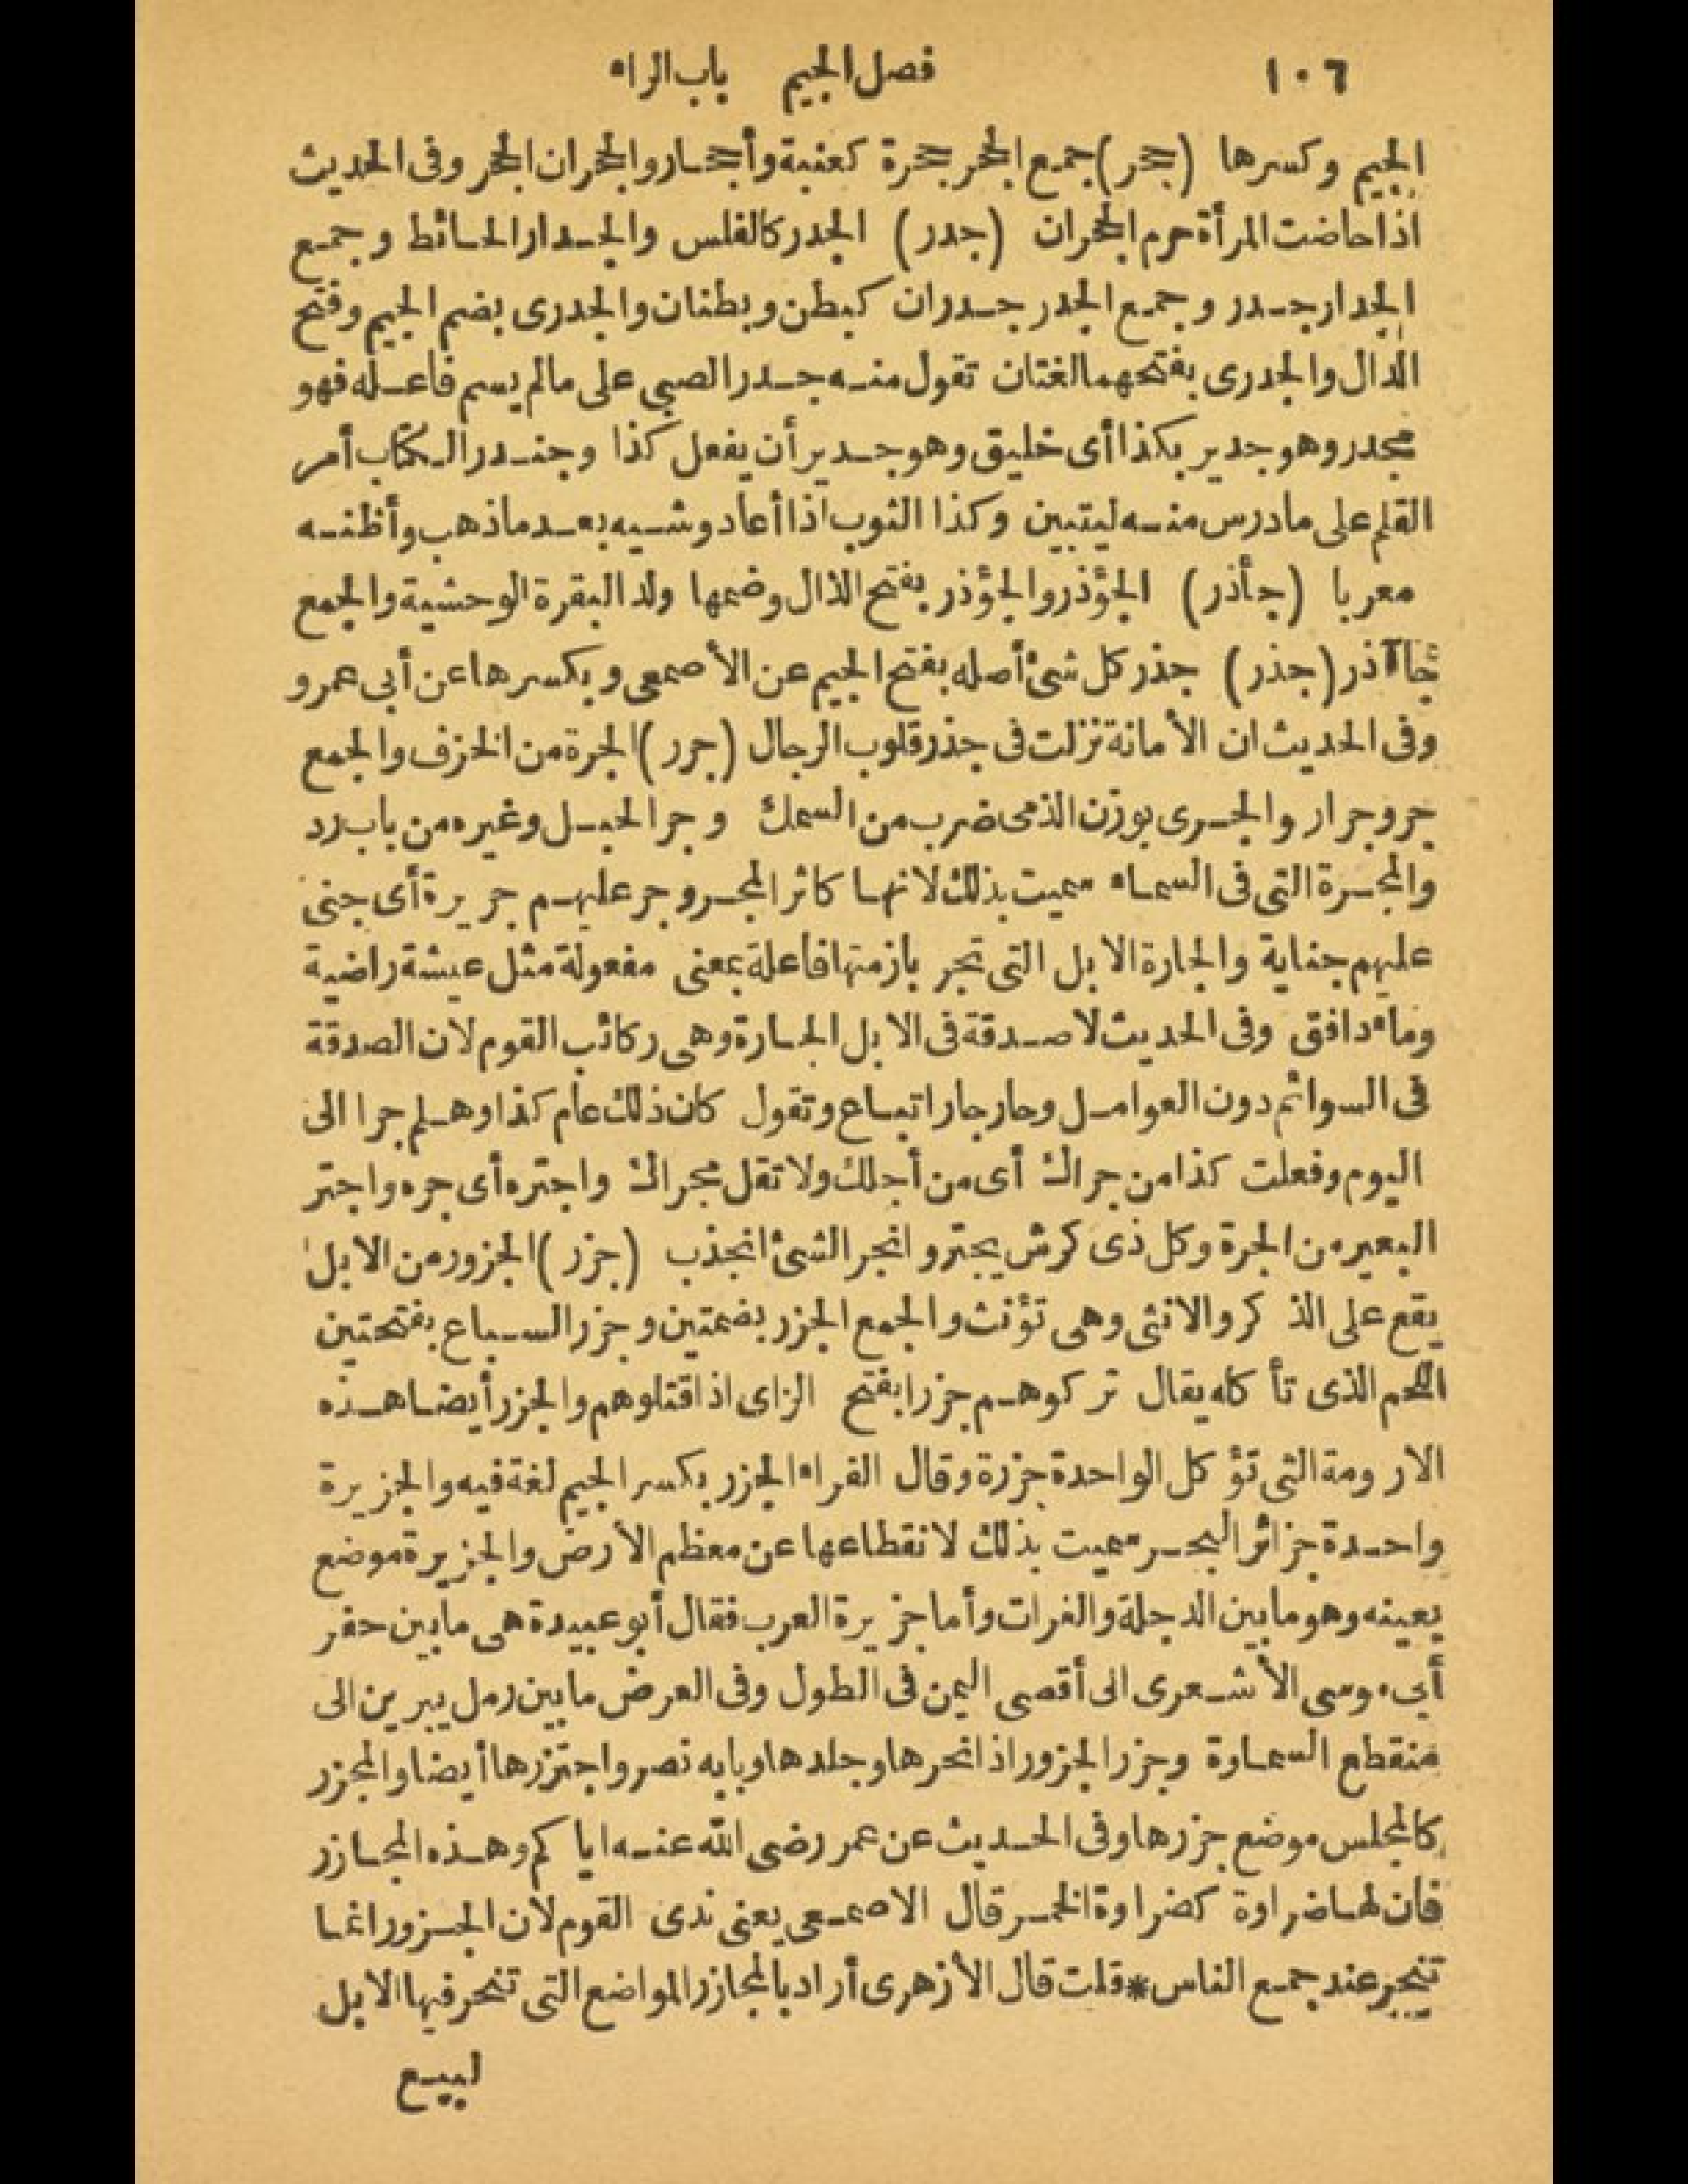 ١٠٦ فصل الجيم باب الراء
الجيم وكسرها (جحر) جمع الجحر جحرة كعنبة وأجحار والجحران الجحر وفى الحديث
اذا حاضت المرأة حرم الجحران (جدر) الجدر كالفلس والجدار الحائط وجمع
الجدار جدر وجمع الجدر جدران كبطن وبطنان والجدرى بضم الجيم وفتح
الدال والجدرى بفتحهما لغتان تقول منه جدر الصبي على مالم يسم فاعله فهو
مجدر وهو جدير بكذا أى خليق وهو جدير أن يفعل كذا وجندر الكتاب أمر
القلم على ما درس منه ليتبين وكذا الثوب اذا أعاد وشيه بعد ماذهب وأظنه
معربا (جأذر) الجؤذر والجؤذر بفتح الذال وضمها ولد البقرة الوحشية والجمع
جاآذر (جذر) جذر كل شئ أصله بفتح الجيم عن الأصمعى وبكسرها عن أبى عمرو
وفى الحديث ان الأمانة نزلت فى جذر قلوب الرجال (جرر) الجرة من الخزف والجمع
جر وجرار والجرى بوزن الذمى ضرب من السمك وجر الحبل وغيره من باب رد
والمجرة التى فى السماء سميت بذلك لانها كاثر المجر وجر عليهم جريرة أى جنى
عليهم جناية والجارة الابل التى تجر بازمتها فاعلة بمعنى مفعولة مثل عيشة راضية
وماء دافق وفى الحديث لا صدقة فى الابل الجارة وهى ركائب القوم لان الصدقة
فى السوائم دون العوامل وحار جار اتباع وتقول كان ذلك عام كذا وهلم جرا الى
اليوم وفعلت كذا من جراك أى من أجلك ولا تقل مجراك واجتره أى جره واجتر
البعير من الجرة وكل ذى كرش يجتر وانجر الشئ انجذب (جزر) الجزور من الابل
يقع على الذكر والانثى وهى تؤنث والجمع الجزر بضمتين وجزر السباع بفتحتين
اللحم الذى تأكله يقال تركوهم جزرا بفتح الزاى اذا قتلوهم والجزر أيضا هذه
الارومة التى تؤكل الواحدة جزرة وقال الفراء الجزر بكسر الجيم لغة فيه والجزيرة
واحدة جزائر البحر سميت بذلك لانقطاعها عن معظم الأرض والجزيرة موضع
بعينه وهو ما بين الدجلة والفرات وأما جزيرة العرب فقال أبو عبيدة هى ما بين حفر
أبى موسى الأشعرى الى أقصى اليمن فى الطول وفى العرض ما بين رمل يبرين الى
منقطع السماوة وجزر الجزور اذا نحرها وجلدها وبابه نصر واجتزرها أيضا والمجزر
كالمجلس موضع جزرها وفى الحديث عن عمر رضى الله عنه اياكم وهذه المجازر
فان لها ضراوة كضراوة الخمر قال الاصمعى يعنى ندى القوم لان الجزور انما
تنحر عند جمع الناس * قلت قال الأزهرى أراد بالمجازر المواضع التى تنحر فيها الابل
لبيع